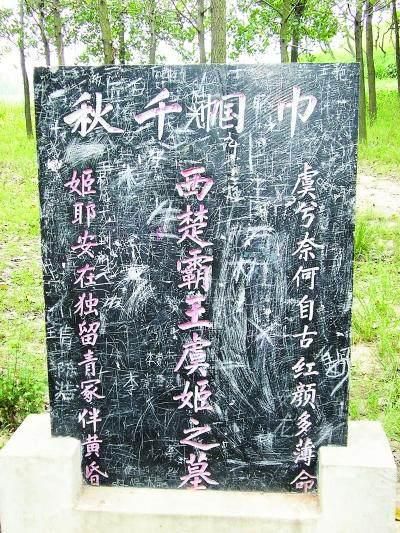 巾帼千秋
虞兮奈何自古红颜多薄命
西楚霸王虞姬之墓
姬耶安在独留青冢伴黄昏
陈浩
李